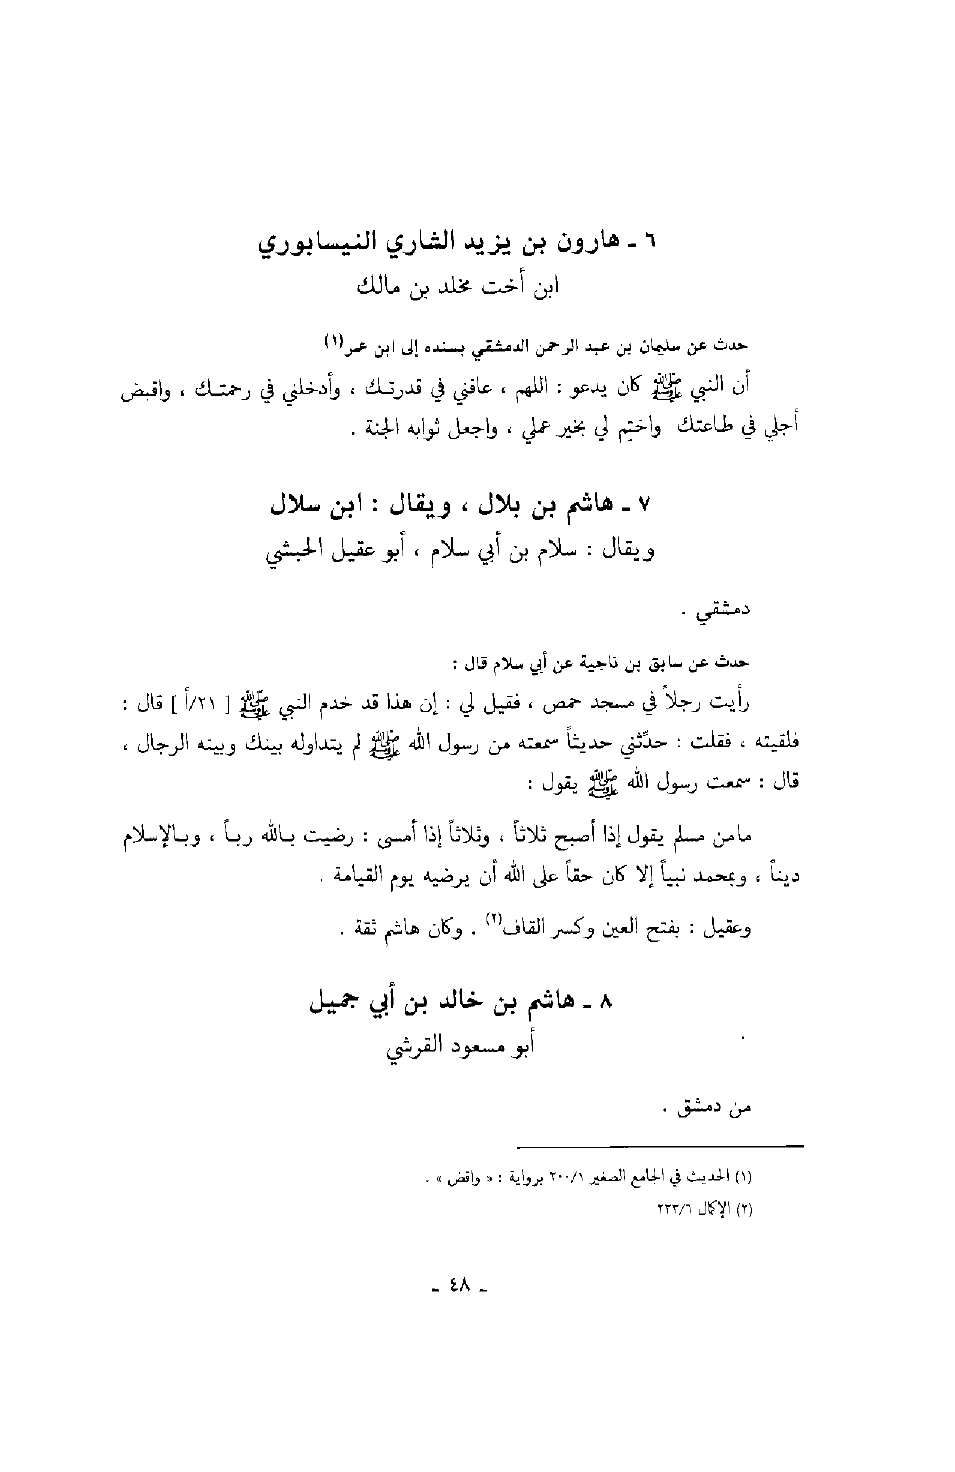 ٦ ـ هارون بن يزيد الشاري النيسابوري
ابن أخت مخلد بن مالك
حدث عن سليمان بن عبد الرحمن الدمشقي بسنده إلى ابن عمر(١)
أن النبي ﷺ كان يدعو : اللهم ، عافني في قدرتك ، وأدخلني في رحمتك ، واقبض
أجلي في طاعتك واختم لي بخير عملي ، واجعل ثوابه الجنة .
٧ ـ هاشم بن بلال ، ويقال : ابن سلال
ويقال : سلام بن أبي سلام ، أبو عقيل الحبشي
دمشقي .
حدث عن سابق بن ناجية عن أبي سلام قال :
رأيت رجلاً في مسجد حمص ، فقيل لي : إن هذا قد خدم النبي ﷺ [ ٢١/أ ] قال :
فلقيته ، فقلت : حدِّثني حديثاً سمعته من رسول الله ﷺ لم يتداوله بينك وبينه الرجال ،
قال : سمعت رسول الله ﷺ يقول :
مامن مسلم يقول إذا أصبح ثلاثاً ، وثلاثاً إذا أمسى : رضيت بالله رباً ، وبالإسلام
ديناً ، وبمحمد نبياً إلا كان حقاً على الله أن يرضيه يوم القيامة .
وعقيل : بفتح العين وكسر القاف(٢) . وكان هاشم ثقة .
٨ ـ هاشم بن خالد بن أبي جميل
أبو مسعود القرشي
من دمشق .
(١) الحديث في الجامع الصغير ٢٠٠/١ برواية : « واقض » .
(٢) الإكمال ٢٣٣/٦
ـ ٤٨ ـ